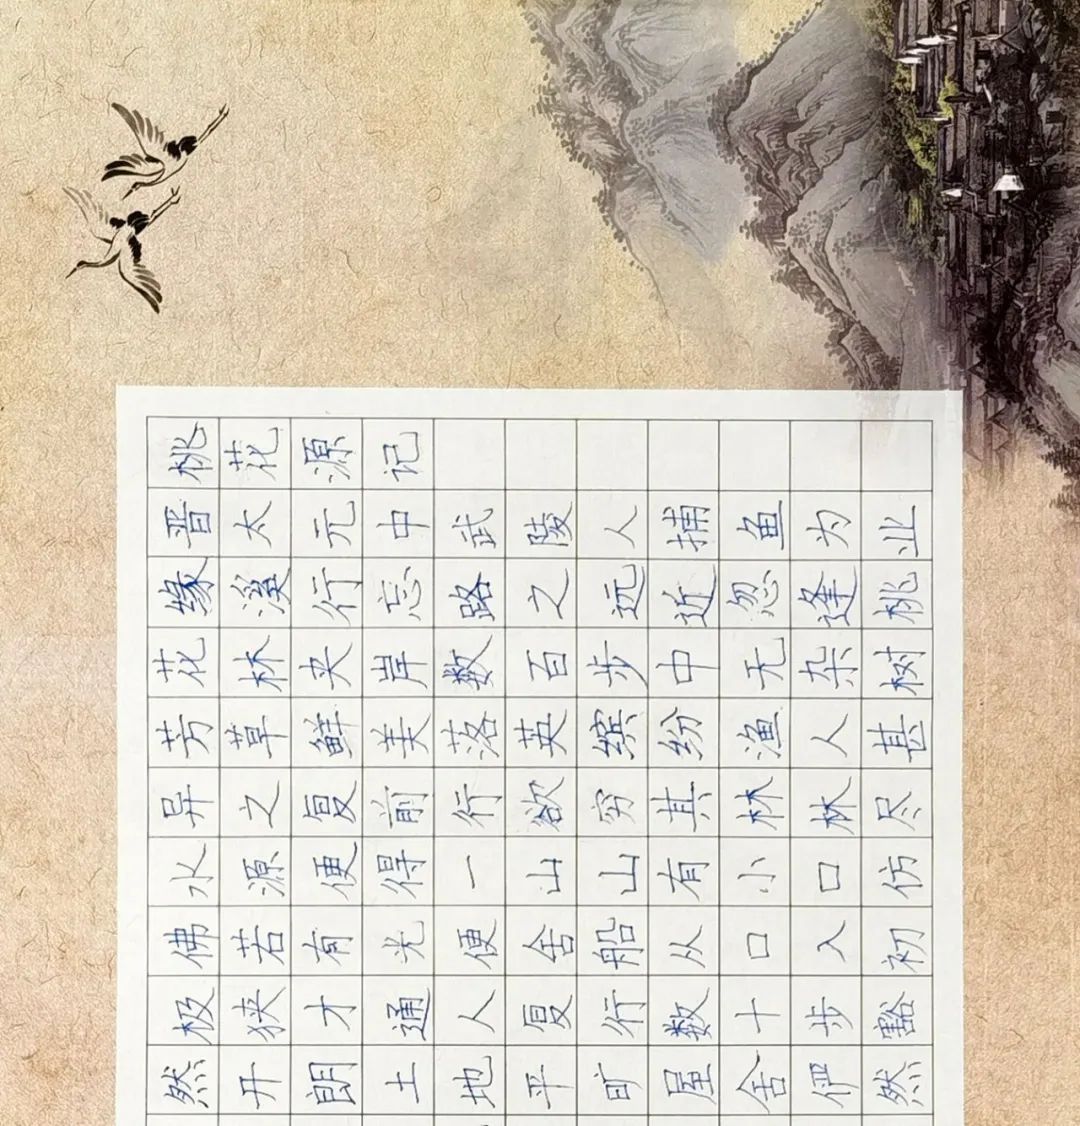 桃花源记
晋太元中武陵人捕鱼为业
缘溪行忘路之远近忽逢桃
花林夹岸数百步中无杂树
芳草鲜美落英缤纷渔人甚
异之复前行欲穷其林林尽
水源便得一山山有小口仿
佛若有光便舍船从口入初
极狭才通人复行数十步豁
然开朗土地平旷屋舍俨然